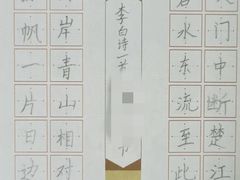 门中断楚江
水东流至此
李白诗一首
下
岸青山相对
帆一片日边